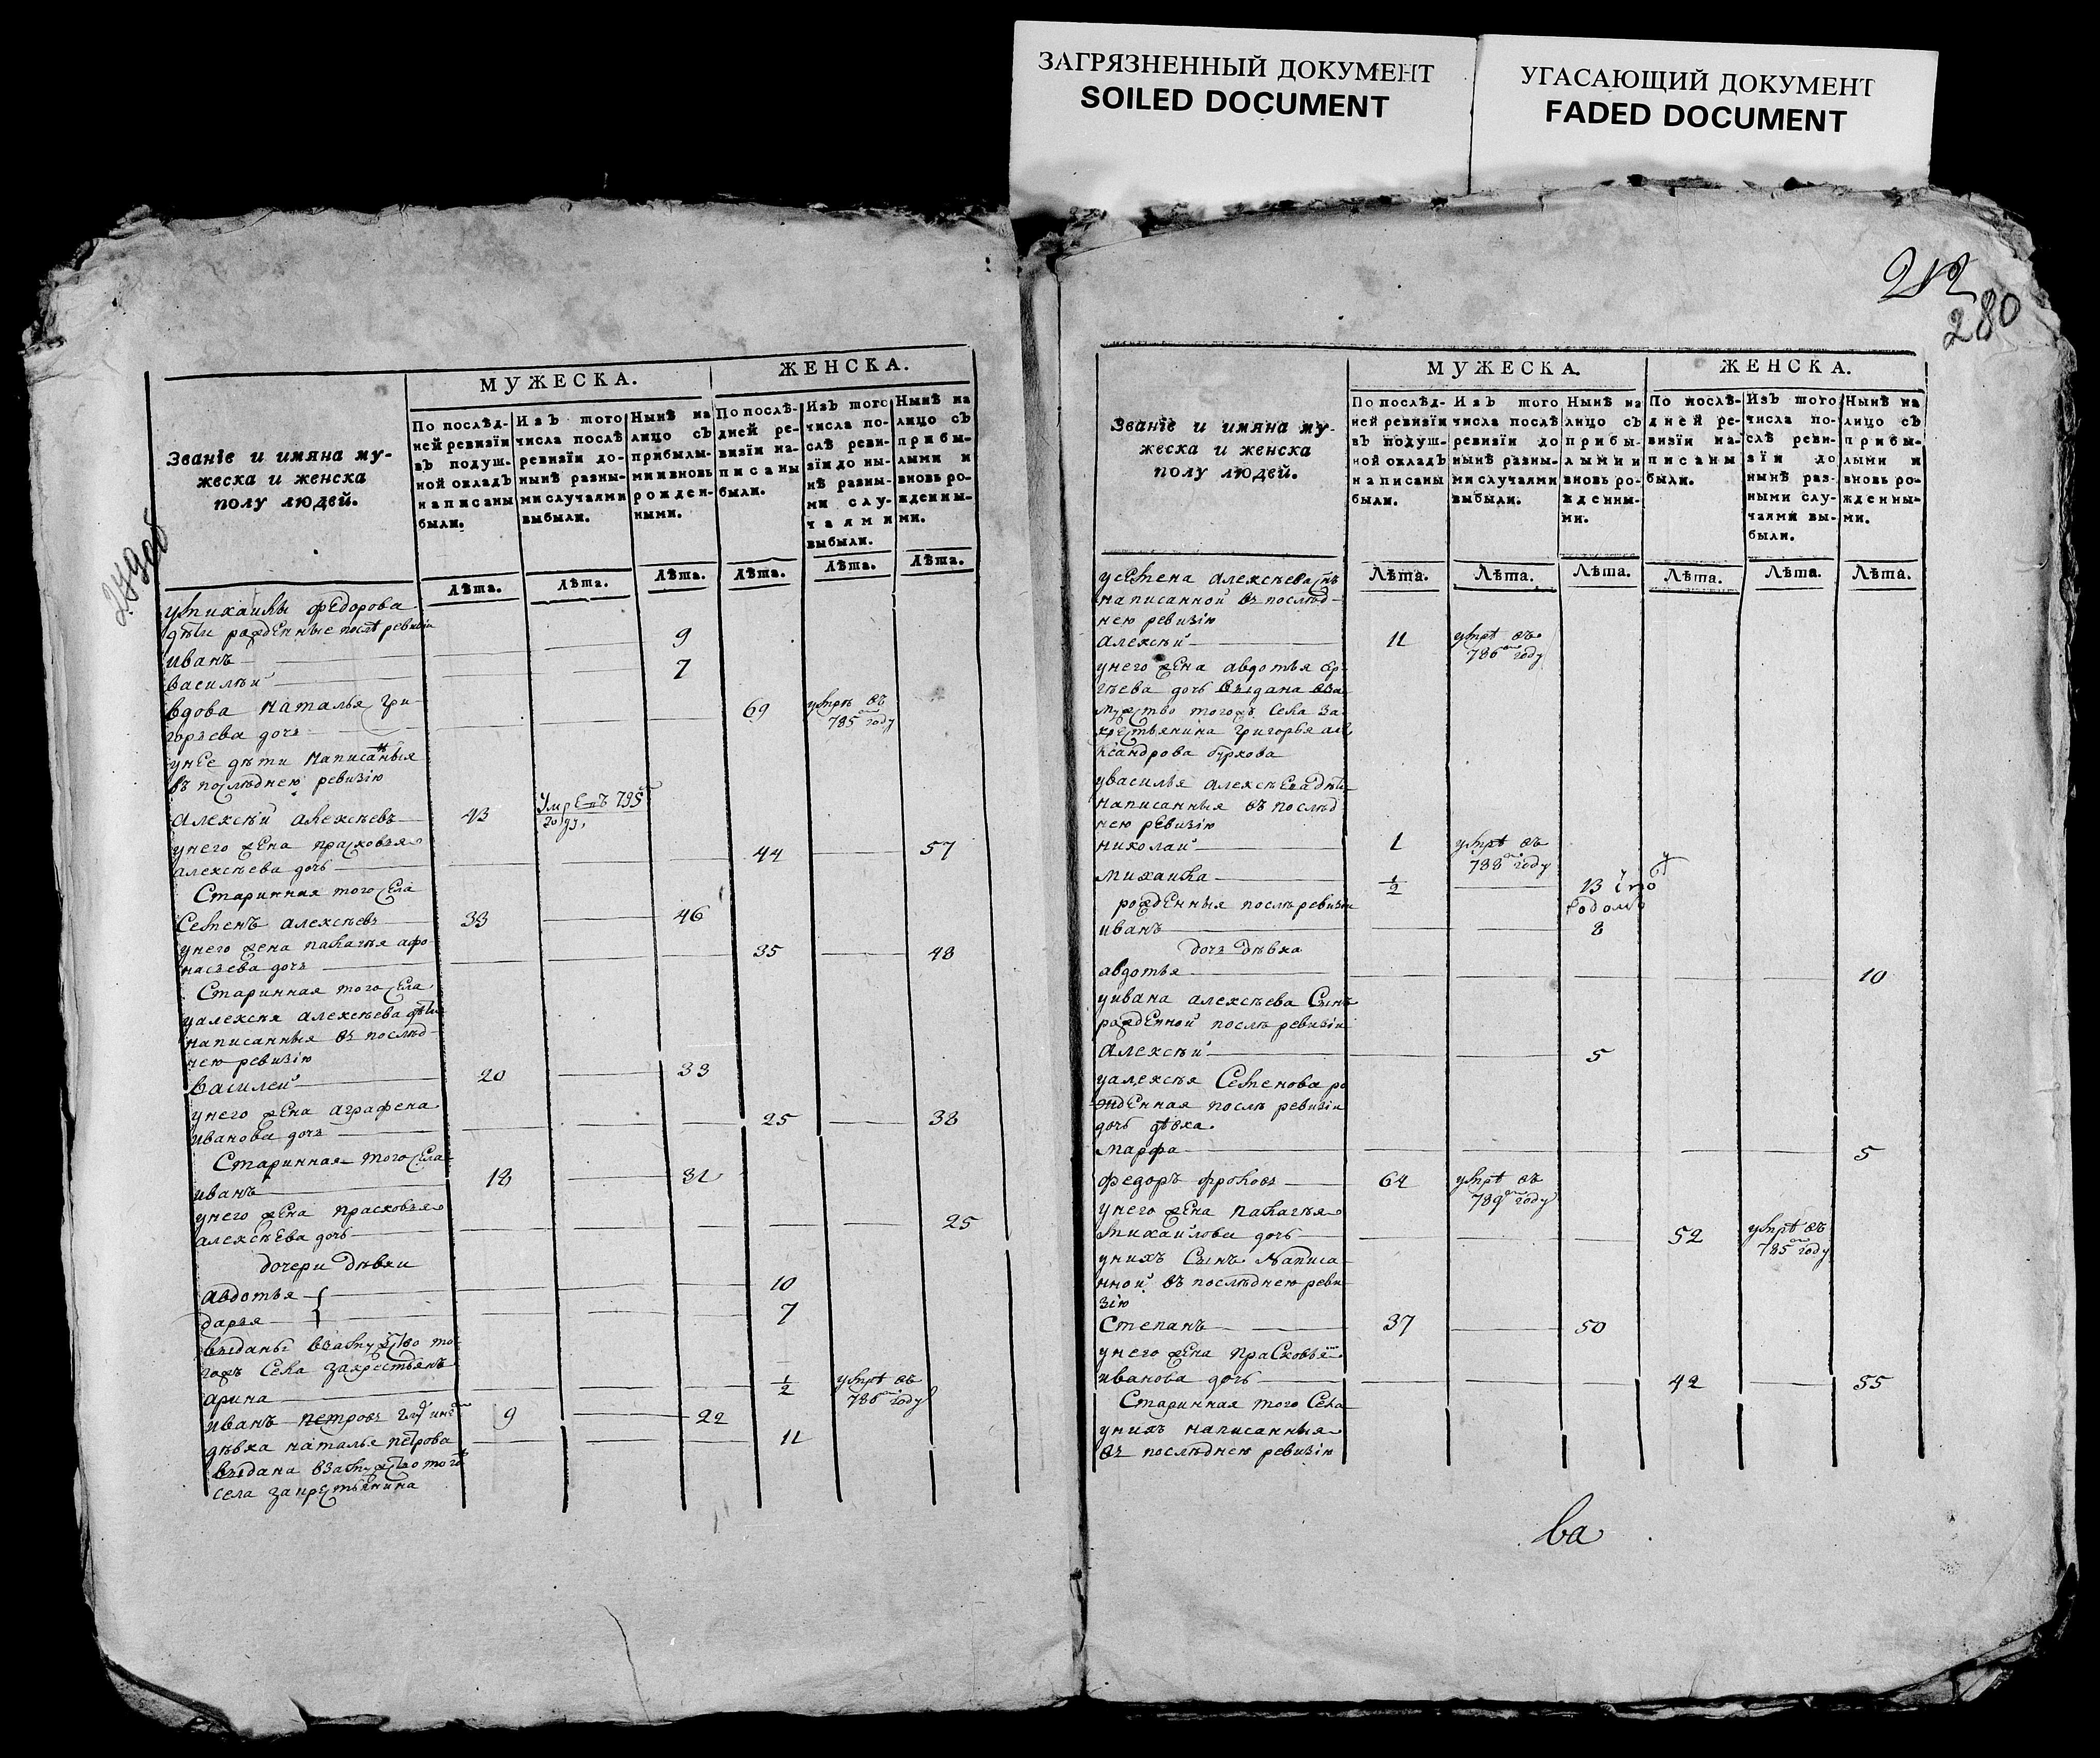 ЗАГРЯЗНЕННЫЙ ДОКУМЕНТ
SOILED DOCUMENT
УГАСАЮЩИЙ ДОКУМЕНТ
FADED DOCUMENT
279об
МУЖЕСКА. ЖЕНСКА.
Званїе и имяна му-
жеска и женска
полу людей.
По послѣд-
ней ревизїи
въ подуш-
ной окладъ
написаны
были.
Изъ того
числа послѣ
ревизїи до-
нынѣ разны-
ми случаями
выбыли.
Нынѣ на
лицо съ
прибылы-
ми и вновь
рожден-
ными.
По послѣ-
дней ре-
визїи на-
писаны
были.
Изъ того
числа по-
слѣ реви-
зїи до ны-
нѣ разны-
ми слу-
чаями
выбыли.
Нынѣ на
лицо съ
прибы-
лыми и
вновь ро-
жденны-
ми.
Лѣта. Лѣта. Лѣта. Лѣта. Лѣта. Лѣта.
умихаилы федорова
дѣти рожденные послѣ ревизіи
иванъ 9
василѣй 7
вдова наталья гри-
горьева дочь 69 умре въ 785 году
унее дѣти написанныя
въ послѣднею ревизію
алексѣй алексѣевъ 43 Умре въ 795 году
унего жена прасковья
алексѣева дочь 44 57
Старинная того села
Семенъ алексѣевъ 33 46
унего жена палагѣя афо
насьева дочь 35 48
Старинная того села
уалексѣя алексѣева дѣти
написанныя въ послѣд
нею ревизію
василей 20 33
унего жена аграфена
иванова дочь 25 38
Старинная того села
иванъ 18 31
унего жена прасковья
алексѣева дочь 25
дочери дѣвки
авдотья 10
дарья 7
выданы взамужство то
гожъ села закрестьянъ
арина 1/2 умре въ 786 году
иванъ петровъ 9 22
дѣвка наталья петрова 11
выдана взамужство того
села закрестьянина
212
280
МУЖЕСКА. ЖЕНСКА.
Званїе и имяна му-
жеска и женска
полу людей.
По послѣд-
ней ревизїи
въ подуш-
ной окладъ
написаны
были.
Изъ того
числа послѣ
ревизїи до
нынѣ разны-
ми случаями
выбыли.
Нынѣ на
лицо съ
прибы-
лыми и
вновь ро-
жденны-
ми.
По послѣ-
дней ре-
визїи на-
писаны
были.
Изъ того
числа по-
слѣ реви-
зїи до
нынѣ раз-
ными слу-
чаями вы-
были.
Нынѣ на
лицо съ
прибы-
лыми и
вновь ро-
жденны-
ми.
Лѣта. Лѣта. Лѣта. Лѣта. Лѣта. Лѣта.
усемена алексѣева сынъ
написанной въ послѣд
нею ревизію
алексѣй 11 умре въ 786 году
унего жена авдотья сер
гѣева дочь выдана вза
мужство тогожъ села за
крестьянина григорья але
ксандрова буркова
увасилья алексѣева дѣти
написанныя въ послѣд
нею ревизію
николай 1 умре въ 788 году
михаила 1/2 13
рожденныя послѣ ревизіи
иванъ 8
дочь дѣвка
авдотья 10
уивана алексѣева сынъ
рожденной послѣ ревизіи
алексѣй 5
уалексѣя семенова ро
жденная послѣ ревизіи
дочь дѣвка
марфа 5
федоръ фроловъ 64 умре въ 789 году
унего жена палагѣя
михаилова дочь 52 умре въ 785 году
унихъ сынъ написа
нной въ послѣднею реви
зію
Степанъ 37 50
унего жена прасковья
иванова дочь 42 55
Старинная того села
унихъ написанныя
въ послѣднею ревизію
ва